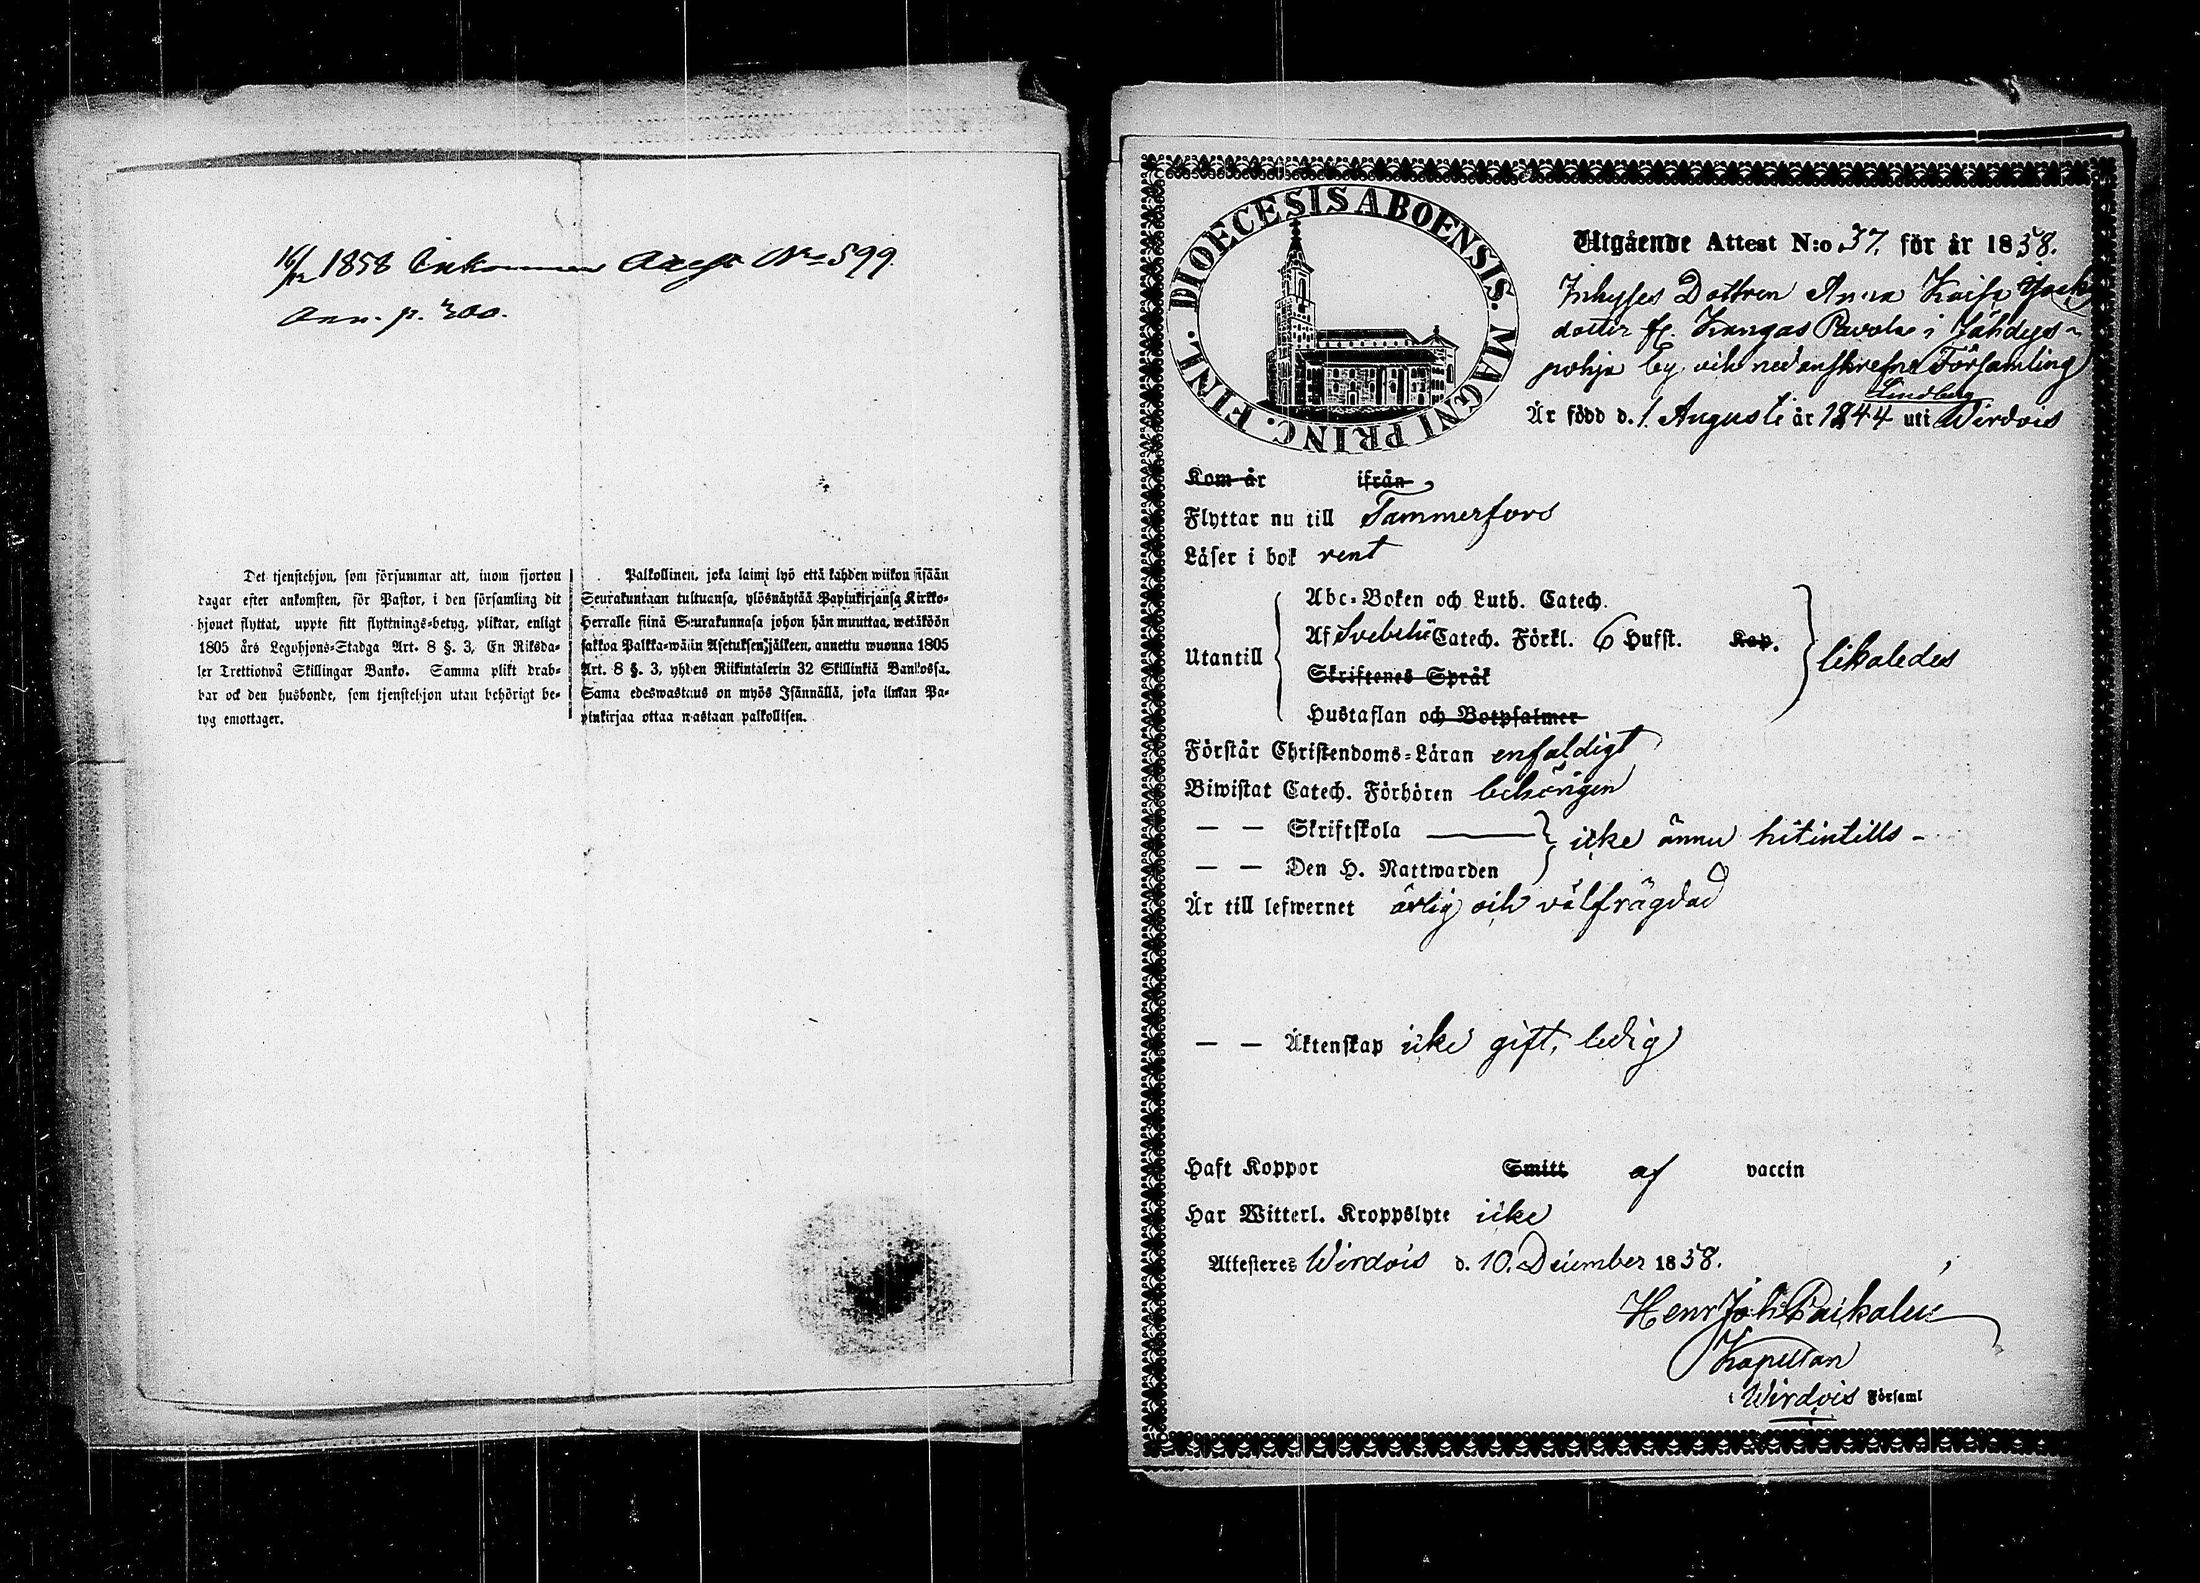 16/12 1858 Inkommen Attest No 599.
Ann. p. 300.
Det tjenstehjon, som försummar att, inom fjorton
dagar efter ankomsten, för Pastor, i den församling dit
hjonet flyttat, uppte sitt flyttnings=betyg, pliktar, enligt
1805 års Legohjons=Stadga Art. 8 §. 3, En Riksda=
ler Trettiotwå Skillingar Banko. Samma plikt drab=
bar ock den husbonde, som tjenstehjon utan behörigt be=
tyg emottager.
Palkollinen, joka laimi lyö että kahden wiikon sisään
Seurakuntaan tultuansa, ylösnäytää Papinkirjansa Kirkko=
Herralle siinä Seurakunnasa johon hän muuttaa, wetäköön
sakkoa Palkka=wäün Asetuksen jälkeen, annettu wuonna 1805
Art. 8 §. 3, yhden Riikintalerin 32 Skillinkiä Bankossa.
Sama edeswastaus on myös Isännällä, joka ilman Pa=
pinkirjaa ottaa wastaan palkollisen.
DIOECESIS ABOENSIS. MAGNI PRINC. FINL.
Utgående Attest N:o 37. för år 1858.
Inhyses Dottren Anna Kaisa
dotter fr. Kangas Pavola i Jähdys-
pohja by och nedanskrefne Församling
Lindberg
Är född d. 1 Augusti år 1844 uti Wirdois
Kom år ifrån
Flyttar nu till Tammerfors
Läser i bok rent
Utantill
Abc=Boken och Luth. Catech.
Af Svebelii Catech. Förkl. 6 Hufst. Kap.
Skriftenes Språk
Hustaflan och Botpsalmer
likaledes
Förstår Christendoms=Läran enfaldigt
Biwistat Catech. Förhören behörigen
— — Skriftskola
— — Den H. Nattwarden
icke ännu hitintills -
Är till lefwernet ärlig och välfrägdad
— — Äktenskap icke gift, ledig
Haft Koppor Smitt af vaccin
Har Witterl. Kroppslyte icke
Attesteres Wirdois d. 10. December 1858.
Henr Joh Paikalén
Kapellan
i Wirdois Församl